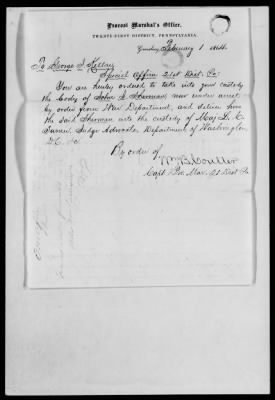 Provost Marshal's Office,
TWENTY-FIRST DISTRICT, PENNSYLVANIA,
February 1 1864.
To George S. Kelley
Special Officer 21st Dist. Pa:
You are hereby ordered to take into your custody
the body of John S. Sherman now under arrest
by order from War Department, and deliver him
the said Sherman into the custody of Maj. L. C.
Turner Judge Advocate, Department of Washington,
D.C. &c.
By order of
Wm B. Coulter
Capt & Pro. Mar. 21 Dist Pa